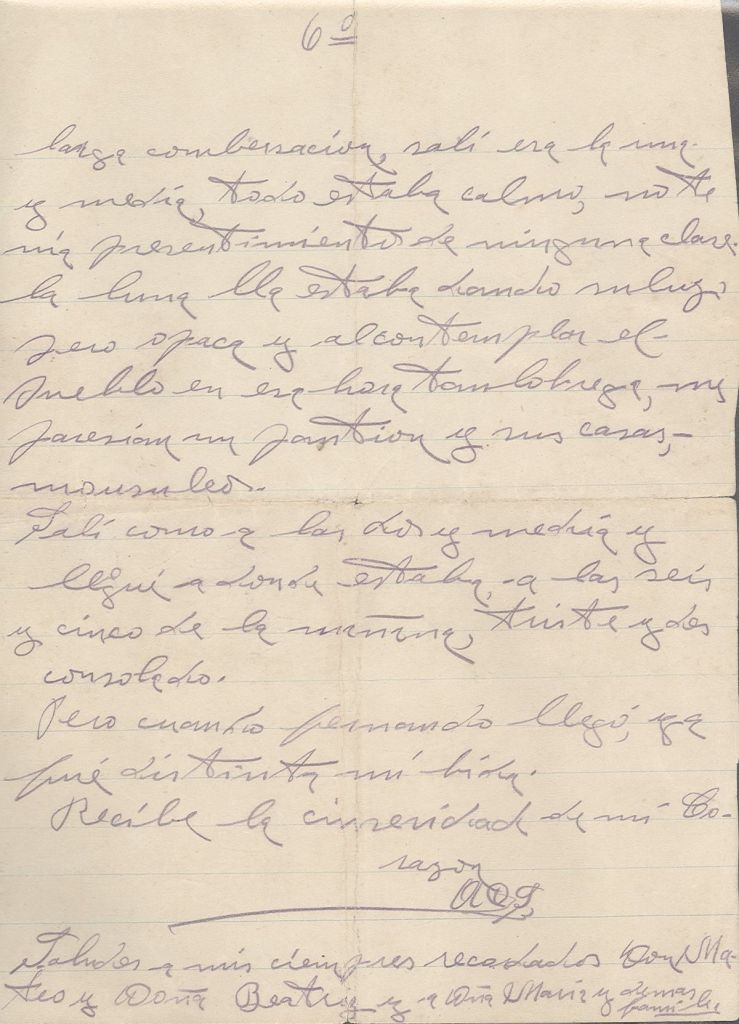 6º
larga combersacion, salí era la una
y media, todo estaba calmo, no te
nia presentimiento de ninguna clase.
la luna lla estaba dando su luz,
pero opaca y al contemplar el-
pueblo en esa hora tan lobrega, me
paresian un pantion y sus casas,-
mousuleos.
Salí como a las dos y media y
llegué a donde estaba, a las seis
y cinco de la mañana, triste y des
consolado.
Pero cuando fernando llegó, ya
fué distinta mi bida.
Recibe la cinseridad de mi Co-
razon
Saludes a mis ciempres recordados Don Ma-
teo y Doña Beatriz y a Dña Maria y demas
familia